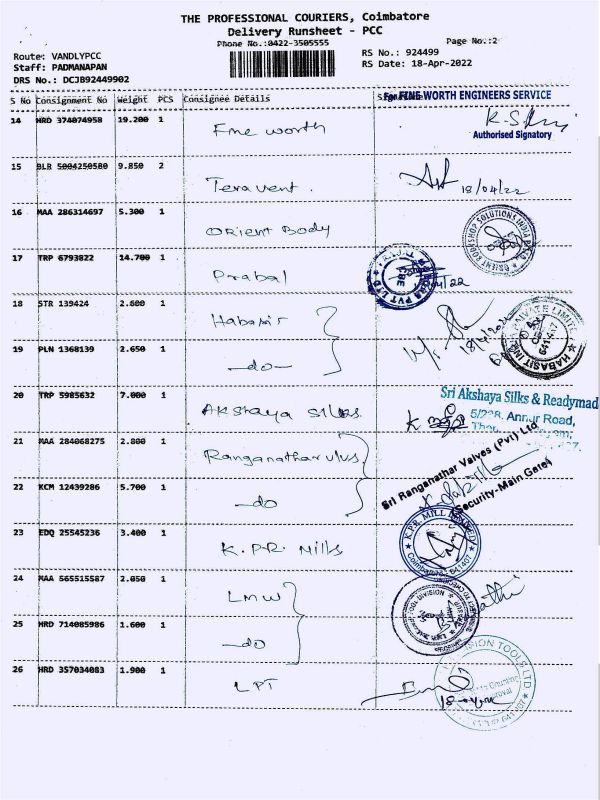 THE PROFESSIONAL COURIERS, Coimbatore
Delivery Runsheet - PCC
Phone No.:0422-3505555
Page No.:2
Route: VANDLYPCC
Staff: PADMANAPAN
DRS No.: DCJB92449902
RS No.: 924499
RS Date: 18-Apr-2022
S No Consignment No Weight PCS Consignee Details
For FINE WORTH ENGINEERS SERVICE
14 HRD 374074958 19.200 1 Fine worth
Authorised Signatory
15 BLR 5004250580 9.850 2 Teravent. 18/04/22
16 MAA 286314697 5.300 1 Orient Body
ORIENT BODYSHOP SOLUTIONS INDIA
17 TRP 6793822 14.700 1 Prabal
PVT LTD CBE
18 STR 139424 2.600 1 Habasit
HABASIT PRIVATE LIMITED
19 PLN 1368139 2.650 1 -do-
20 TRP 5985632 7.000 1 Akshaya silks
Sri Akshaya Silks & Readymad
5/228, Annur Road,
21 MAA 284068275 2.800 1 Ranganathar
Sri Ranganathar Valves (Pvt) Ltd
(Security-Main Gate)
22 KCM 12439286 5.700 1 -do
23 EDQ 25545236 3.400 1 K.P.R. Mills
K.P.R. MILL LIMITED
Coimbatore 641407
24 MAA 565515587 2.050 1 LMW
DIVISION
25 HRD 714085986 1.600 1 -do
26 HRD 357034083 1.900 1 LPT
TOOLS LTD
641 407